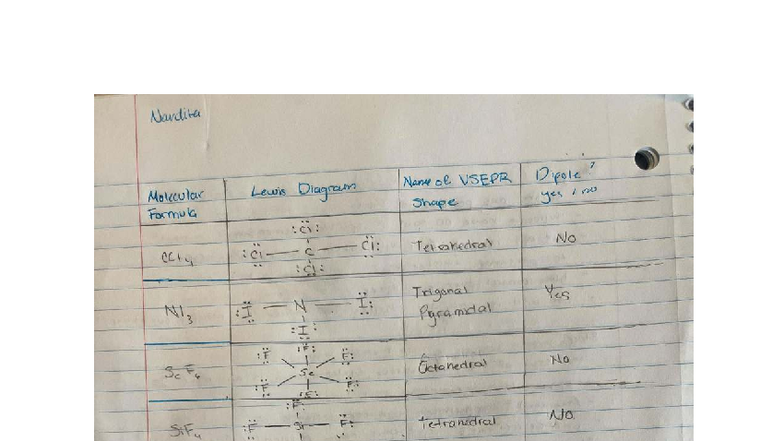 Nardita
Molecular Formula
Lewis Diagram
Name of VSEPR Shape
Dipole? yes / no
CCl4
:Cl: :Cl — C — Cl: :Cl:
Tetrahedral
No
NI3
:I — N — I: :I:
Trigonal Pyramidal
Yes
SeF6
:F: :F: F: Se :F: F: :F:
Octahedral
No
SiF4
:F: :F — Si — F:
Tetrahedral
No